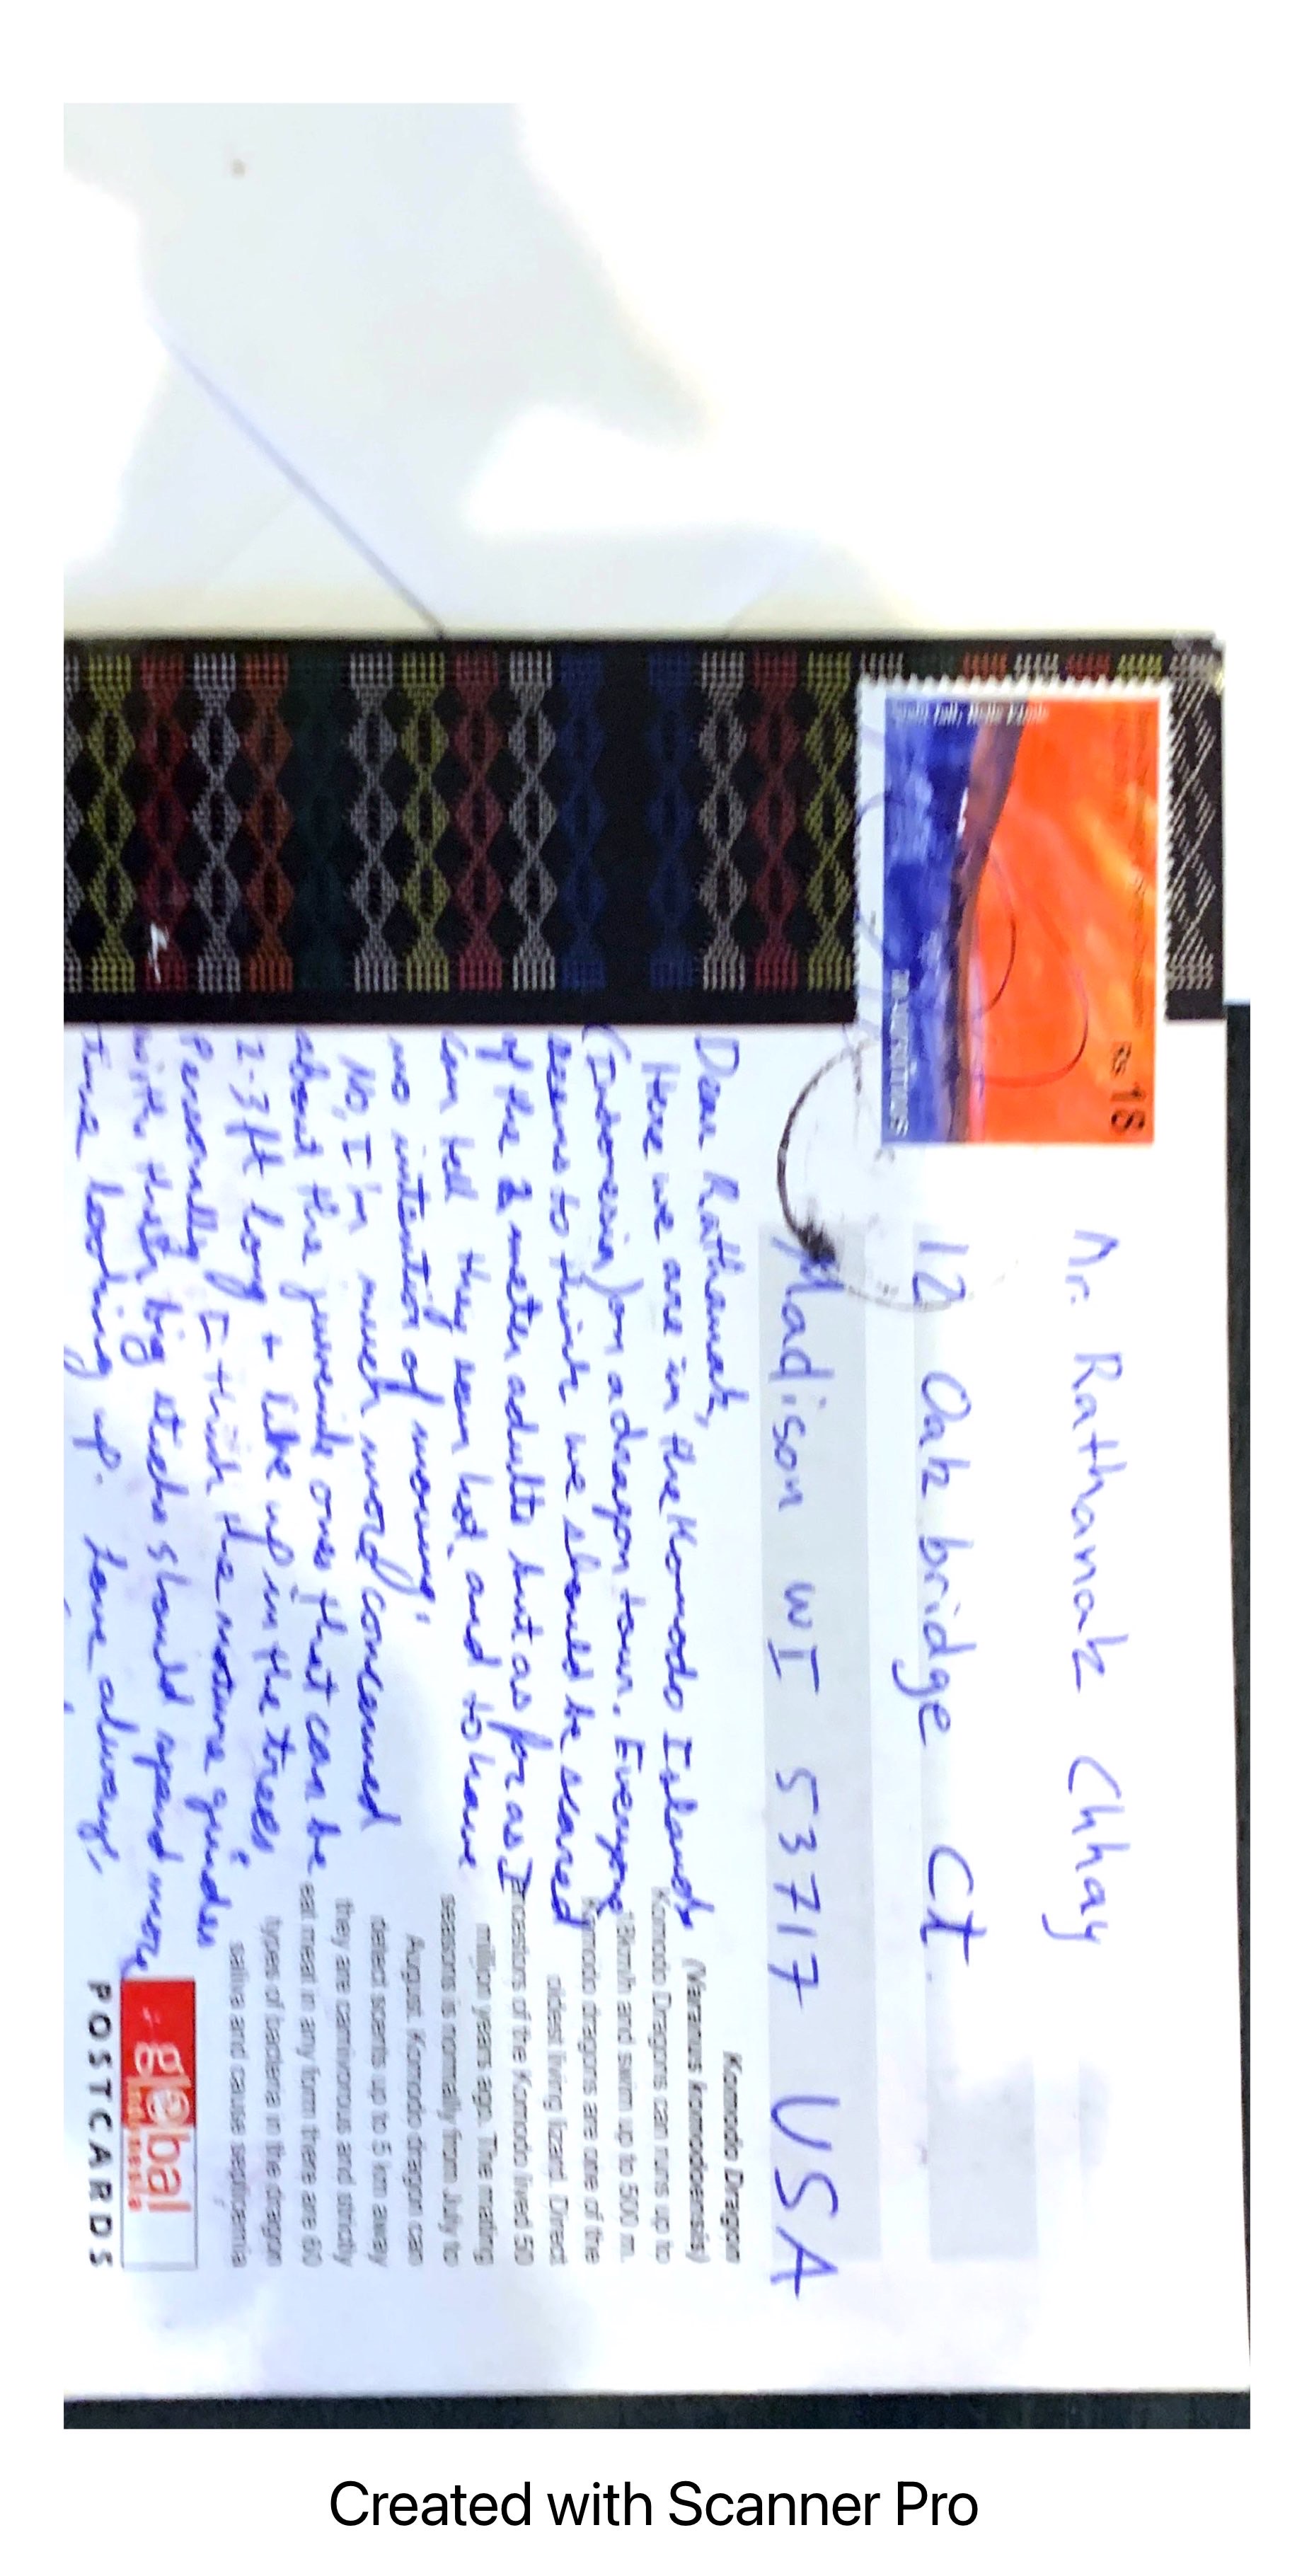 Rs 18
MAURITIUS
Mr. Rathanak Chhay
12 Oakbridge Ct.
Madison WI 53717 USA
Dear Rathanak,
Here we are in the Komodo Islands
(Indonesia) on a dragon tour. Everyone
seems to think we should be scared
of the 3 meter adults but as far as I
can tell they seem hot, and to have
no intention of moving.
No, I'm much more concerned
about the juvenile ones that can be
2-3 ft long + like up in the trees.
Personally I think the nature guides
with their big sticks should spend more
time looking up. Love always,
Komodo Dragon
(Varanus komodoensis)
Komodo Dragons can runs up to
18km/h and swim up to 500 m.
Komodo dragons are one of the
oldest living lizard. Direct
ancestors of the Komodo lived 50
million years ago. The mating
seasons is normally from July to
August. Komodo dragon can
detect scents up to 5 km away
they are carnivorous and strictly
eat meat in any form there are 60
types of bacteria in the dragon
saliva and cause septicemia
global
indonesia
POSTCARDS
Created with Scanner Pro